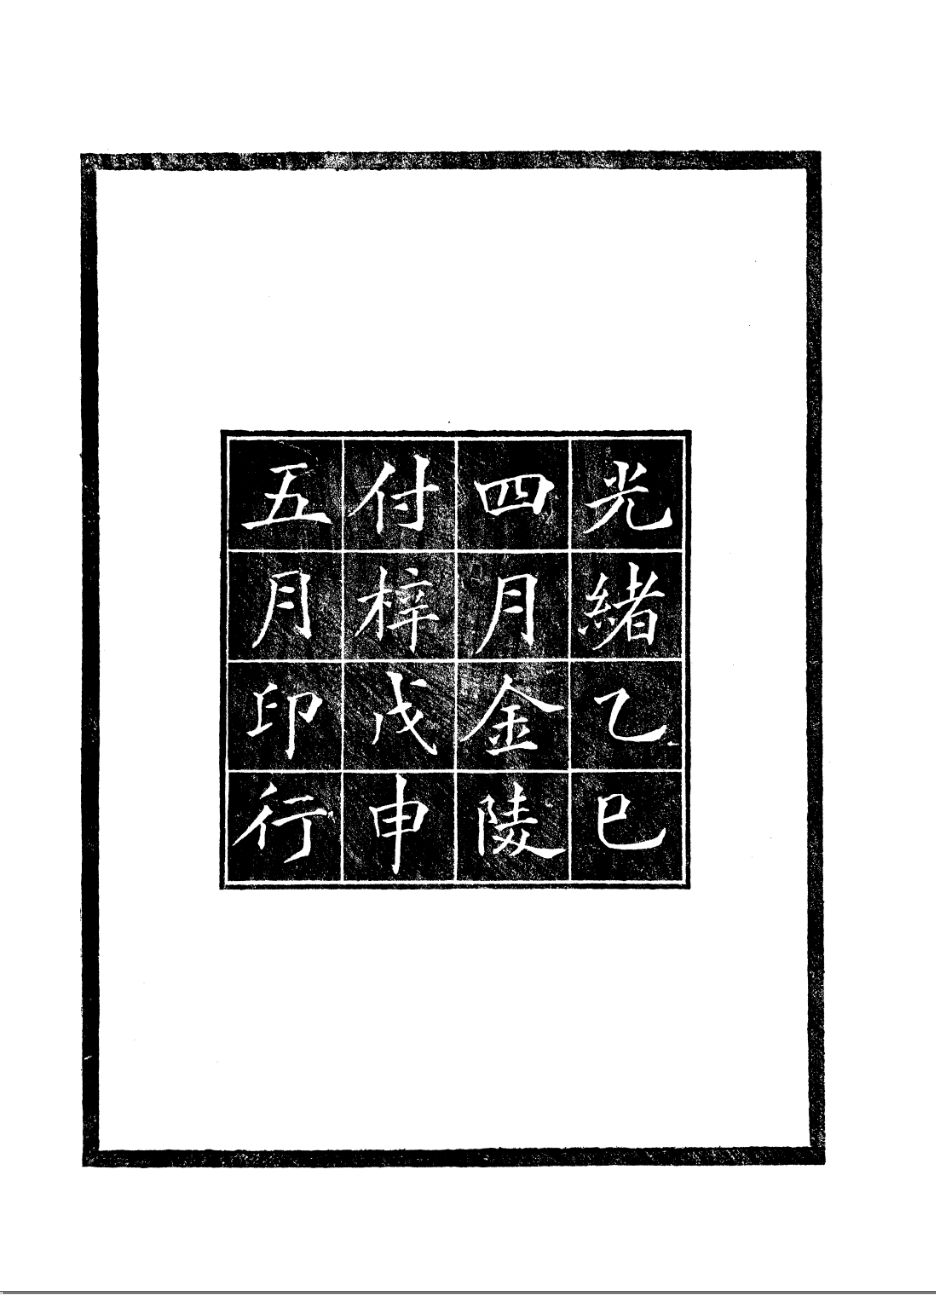 光緒乙巳
四月金陵
付梓戊申
五月印行